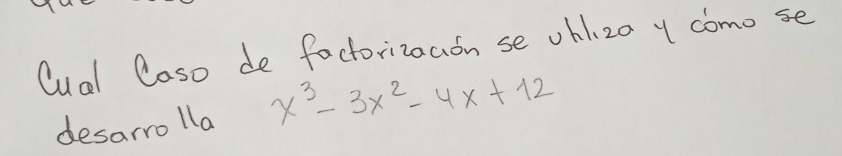 Cual Caso de factorización se utiliza y cómo se
desarrolla x³ - 3x² - 4x + 12